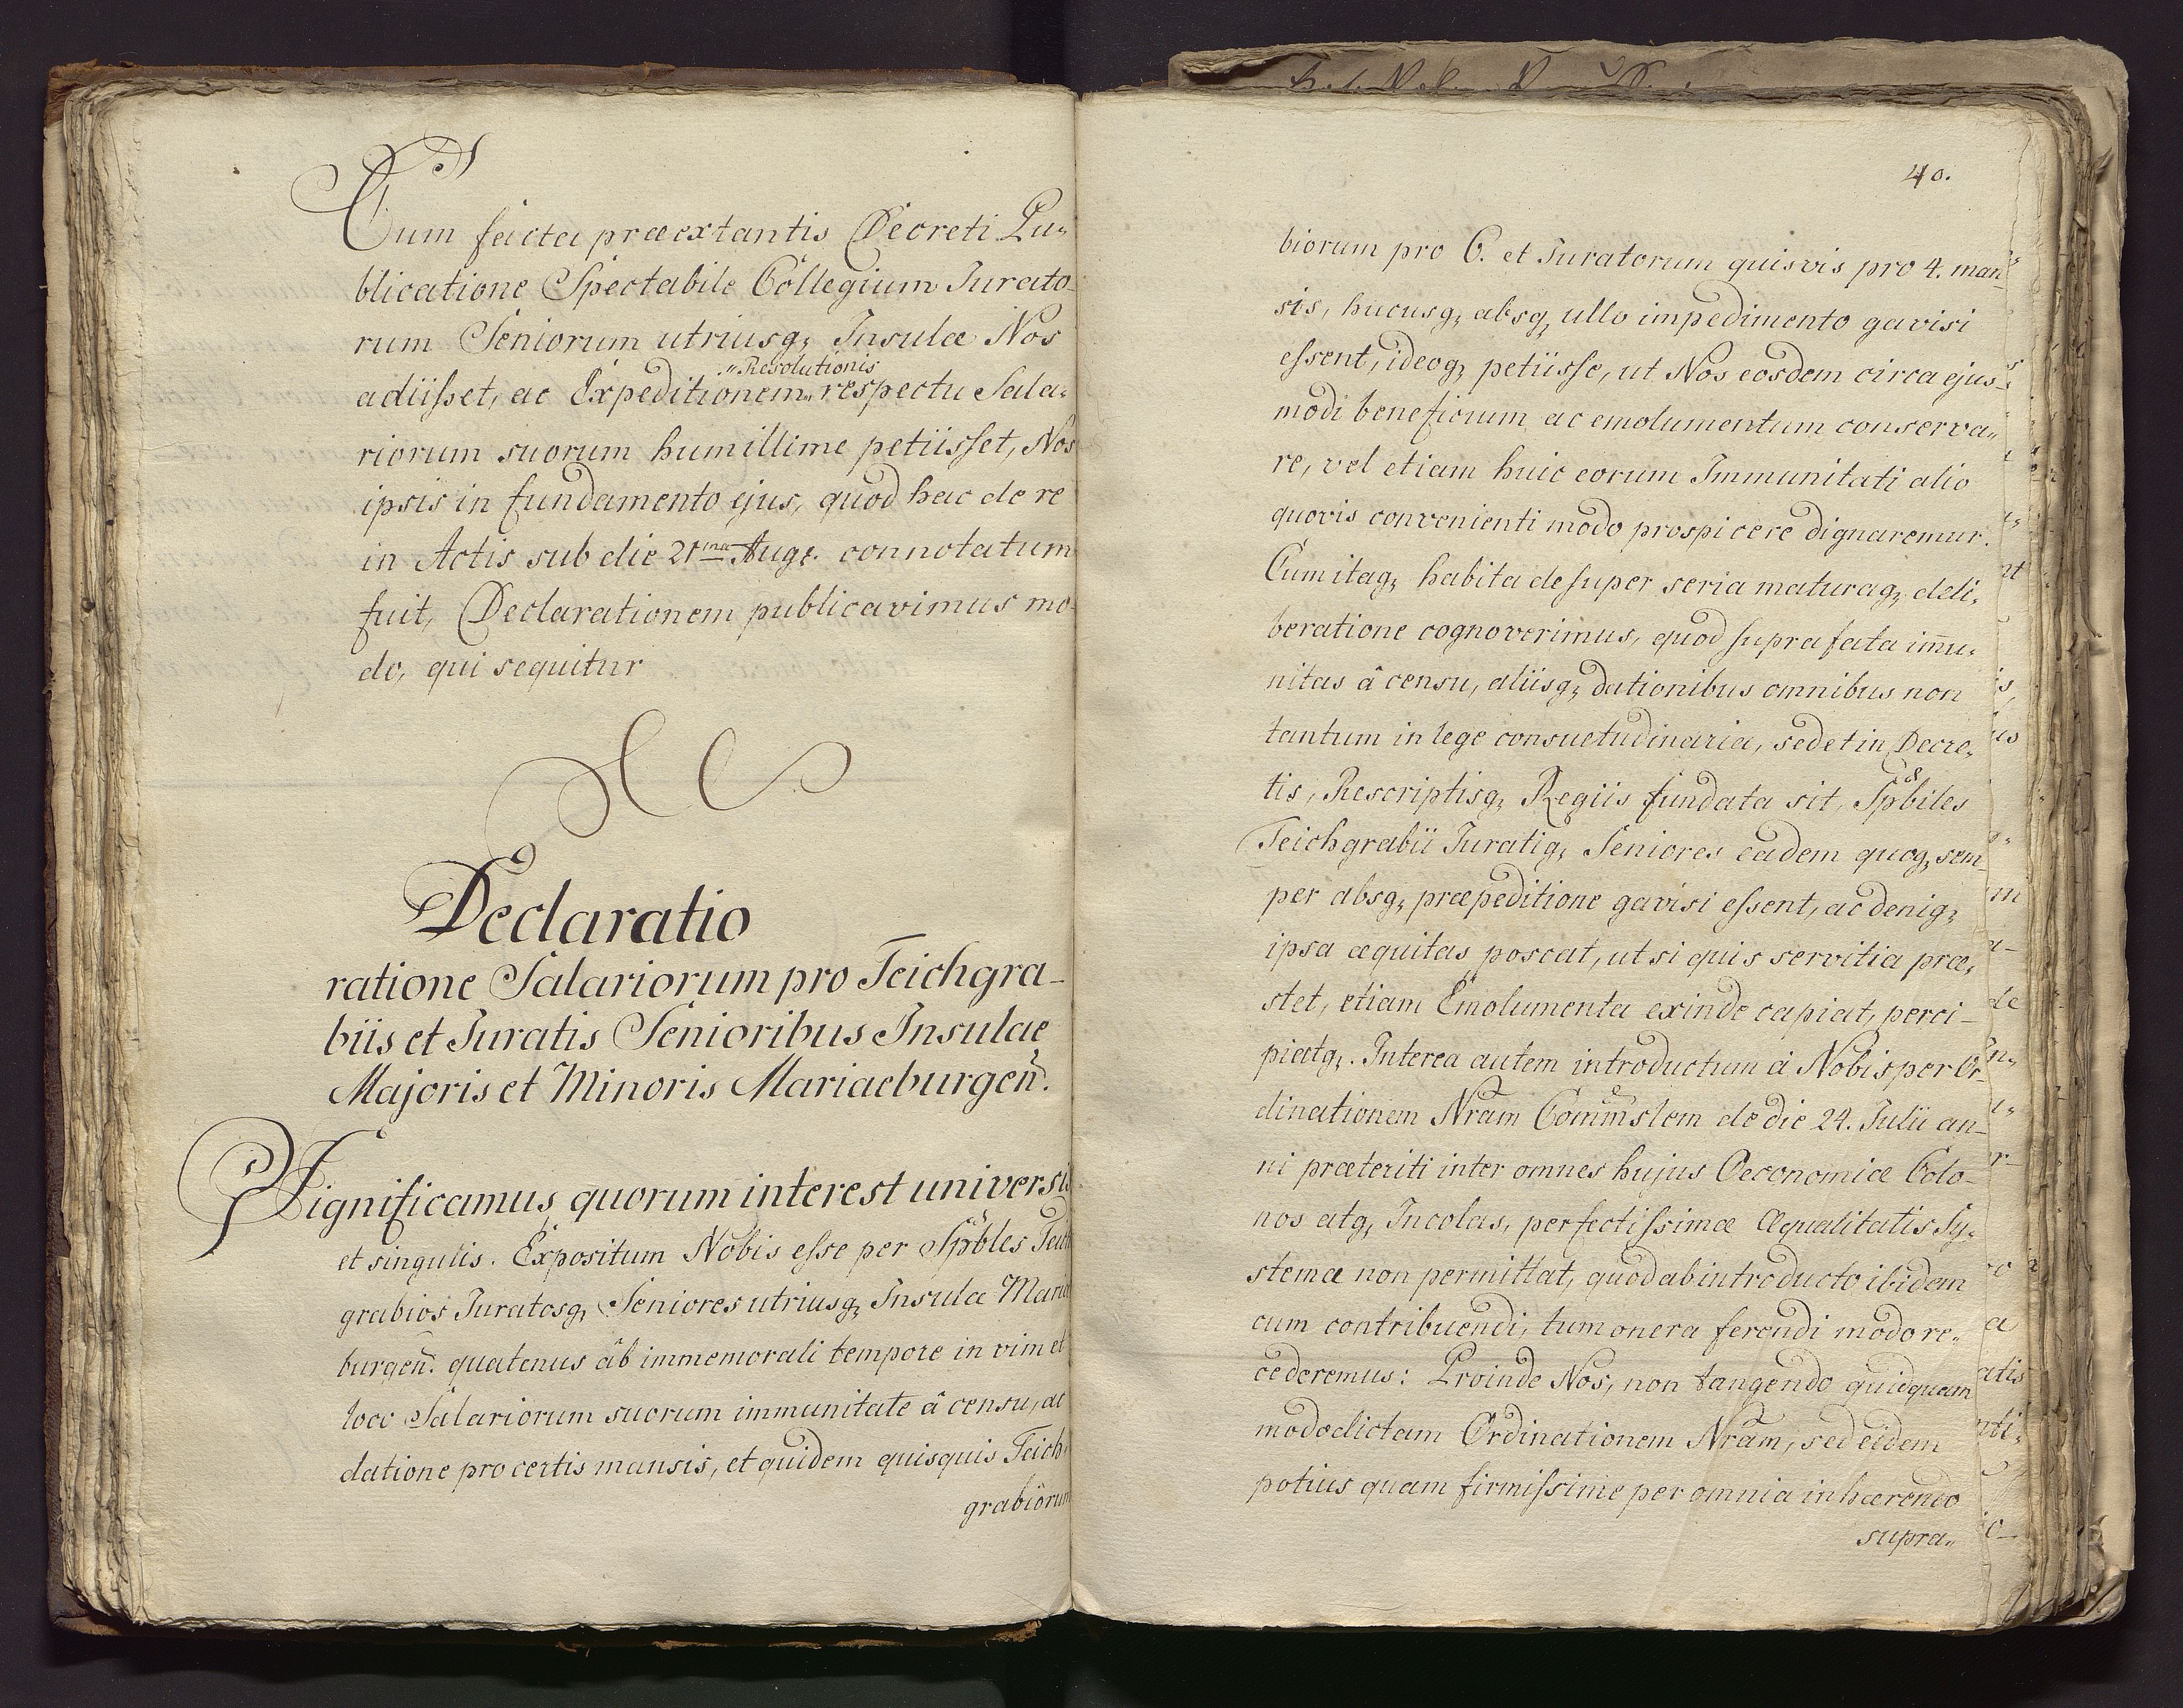 Cum facta præextantis Decreti Pu„
blicatione Spectabile Collegium Jurato-
rum Seniorum utriusq; Insulæ Nos
„Resolutionis
adiisset, ac Expeditionem„ respectu Sala„
riorum suorum humillime petiisset, Nos
ipsis in fundamento ejus, quod hac de re
in Actis sub die 21ma Augt. connotatum
fuit, Declarationem publicavimus mo-
do, qui sequitur
Declaratio
ratione Salariorum pro Teichgra-
biis et Juratis Senioribus Insulae
Majoris et Minoris Mariaeburgen̄.
Significamus quorum interest universis
et singulis. Expositum Nobis esse per Spbles Teich
grabios Juratosq; Seniores utriusq; Insulæ Mariæ
burgen̄. quatenus âb immemorali tempore in vim et
loco Salariorum suorum immunitate â censu, ac
datione pro certis mansis, et quidem quisquis Teich-
grabiorum
40.
biorum pro 6. et Juratorum quisvis pro 4. man„
sis, hucusq; absq; ullo impedimento gavisi
essent, ideoq; petiisse, ut Nos eosdem circa ejus-
modi beneficium ac emolumentum conserva„
re, vel etiam huic eorum Immunitati alio
quovis convenienti modo prospicere dignaremur.
Cum itaq; habita desuper seria maturaq; deli„
beratione cognoverimus, quod supra fata im̄u„
nitas â censu, aliisq; dationibus omnibus non
tantum in lege consuetudinaria, sed et in Decre„
tis, Rescriptisq; Regiis fundata sit, Spbiles
Teichgrabii Juratiq; Seniores eadem quoq; sem-
per absq; præpeditione gavisi essent, ac deniq;
ipsa æquitas poscat, ut si quis servitia præ„
stet, etiam Emolumenta exinde capiat, perci-
piatq;. Interea autem introductum à Nobis per Or-
dinationem Nram Commslem de die 24. Julii an-
ni præteriti inter omnes hujus Oeconomiæ Colo-
nos atq; Incolas, perfectissimæ Æqualitatis Sy„
stema non permittat, quod ab introducto ibidem
cum contribuendi, tum onera ferendi modo re„
cederemus: Proinde Nos, non tangendo quidquam
modo dictam Ordinationem Nram, sed eidem
potius quam firmissime per omnia inhærendo
supra„